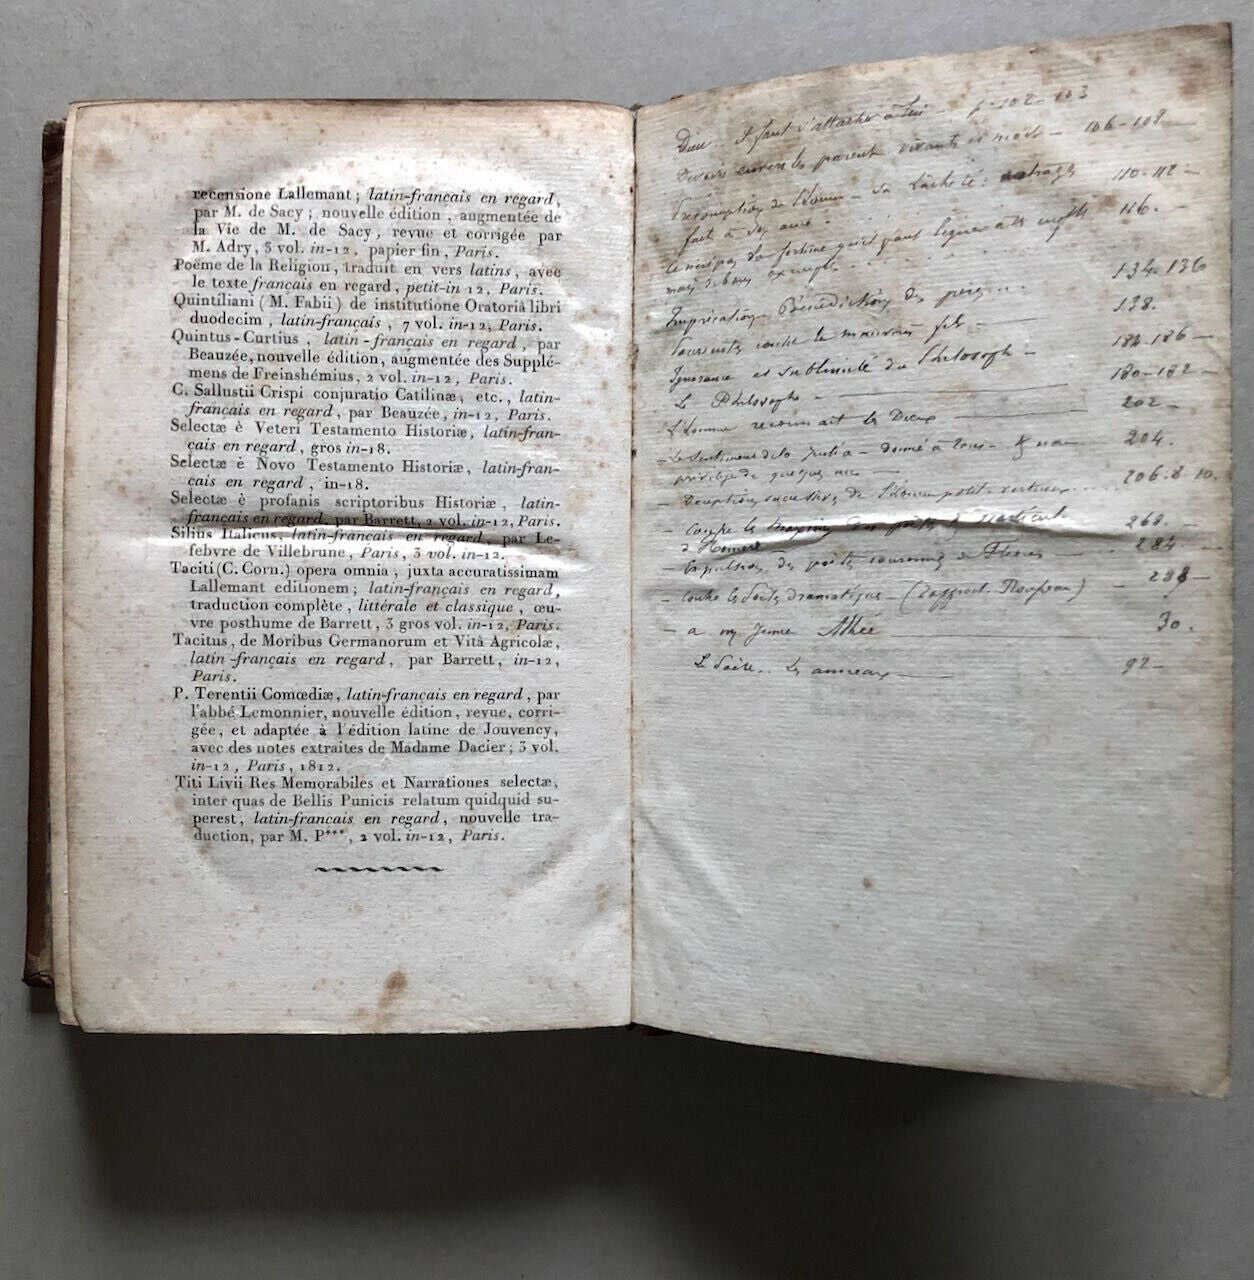 recensione Lallemant ; latin-français en regard,
par M. de Sacy ; nouvelle édition, augmentée de
la Vie de M. de Sacy, revue et corrigée par
M. Adry, 3 vol. in-12, papier fin, Paris.
Poëme de la Religion, traduit en vers latins, avec
le texte français en regard, petit-in 12, Paris.
Quintiliani (M. Fabii) de institutione Oratoriâ libri
duodecim, latin-français, 7 vol. in-12, Paris.
Quintus-Curtius, latin-français en regard, par
Beauzée, nouvelle édition, augmentée des Supplé-
mens de Freinshémius, 2 vol. in-12, Paris.
C. Sallustii Crispi conjuratio Catilinæ, etc., latin-
français en regard, par Beauzée, in-12, Paris.
Selectæ è Veteri Testamento Historiæ, latin-fran-
çais en regard, gros in-18.
Selectæ è Novo Testamento Historiæ, latin-fran-
çais en regard, in-18.
Selectæ è profanis scriptoribus Historiæ, latin-
français en regard, par Barrett, 2 vol. in-12, Paris.
Silius Italicus, latin-français en regard, par Le-
febvre de Villebrune, Paris, 3 vol. in-12.
Taciti (C. Corn.) opera omnia, juxta accuratissimam
Lallemant editionem ; latin-français en regard,
traduction complète, littérale et classique, œu-
vre posthume de Barrett, 3 gros vol. in-12, Paris.
Tacitus, de Moribus Germanorum et Vitâ Agricolæ,
latin-français en regard, par Barrett, in-12,
Paris.
P. Terentii Comœdiæ, latin-français en regard, par
l'abbé Lemonnier, nouvelle édition, revue, corri-
gée, et adaptée à l'édition latine de Jouvency,
avec des notes extraites de Madame Dacier ; 3 vol.
in-12, Paris, 1812.
Titi Livii Res Memorabiles et Narrationes selectæ,
inter quas de Bellis Punicis relatum quidquid su-
perest, latin-français en regard, nouvelle tra-
duction, par M. P***, 2 vol. in-12, Paris.
Dieu. Il faut s'attacher à lui - p. 102-103
Devoirs envers les parents vivants et morts - 106-108 -
de l'homme - sa lâcheté : outrage 110-112 -
fait à son âme
fortune qu'il faut léguer à ses enfants 116. -
mais de bons exemples
Imprécation - Bénédiction des pères... 134-136
contre le mauvais fils - 138.
Ignorance et sublimité du Philosophe - 184-186 -
Le Philosophe - 180-182 -
L'homme reconnait les Dieux 202 -
- Le sentiment de la justice - donné à tous - & non 204.
privilège de quelques uns -
- de l'homme 206. 10.
Contre les des poètes & 268.
d'Homère
- Expulsion des poètes couronnés de fleurs - 284 -
- Contre les Poètes dramatiques - (Rapproch. Rousseau) - 288 -
- a un jeune Athée 30.
Le Les anneaux - 92 -